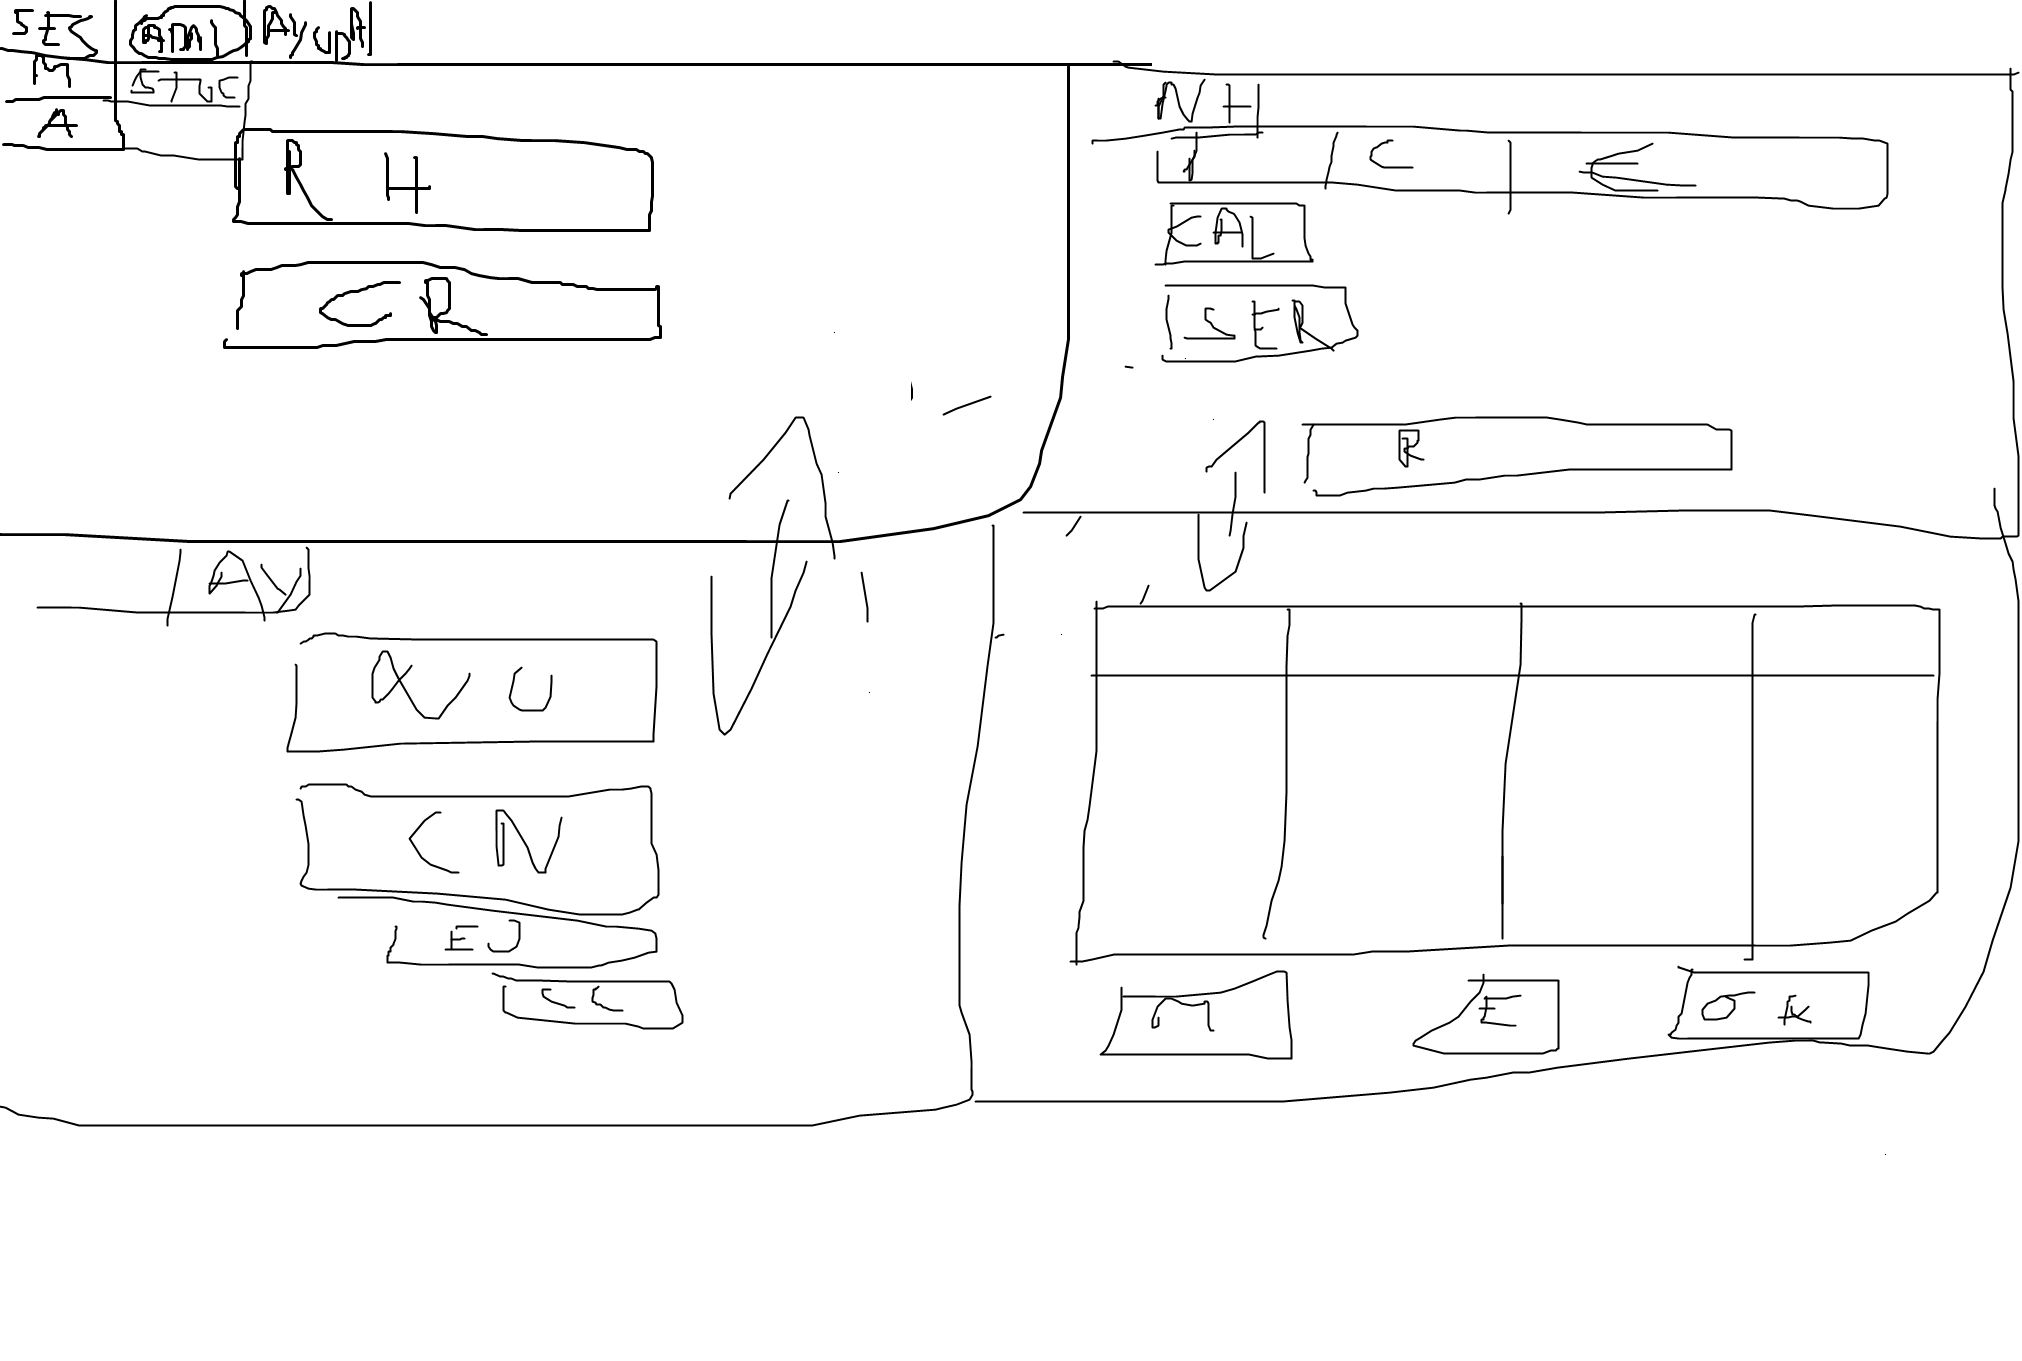 SEC ADMI AyudA
M
A
R H
C R
NH
C
CAL
SER
R
AY
U
C N
EJ
CC
M E OK